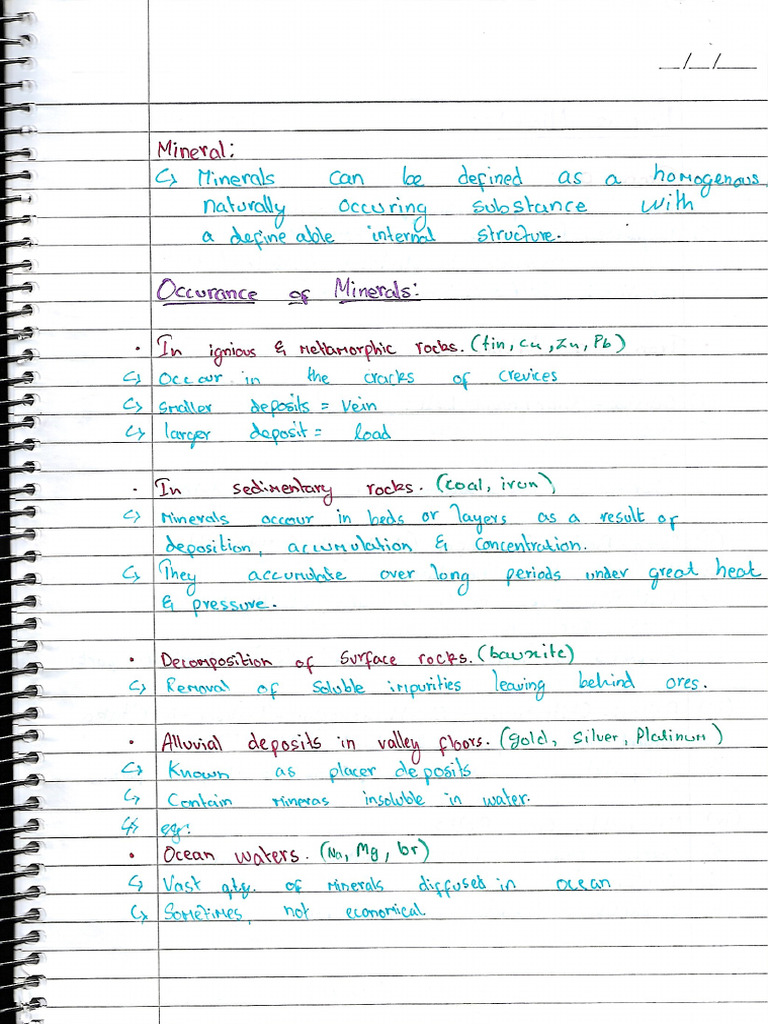 _/_/_
Mineral:
↳ Minerals can be defined as a homogenous,
naturally occuring substance with
a define able internal structure.
Occurance of Minerals:
• In ignious & metamorphic rocks. (tin, Cu, Zn, Pb)
↳ Occur in the cracks of crevices
↳ smaller deposits = vein
↳ larger deposit = load
• In sedimentary rocks. (coal, iron)
↳ Minerals occour in beds or layers as a result of
deposition, accumulation & concentration.
↳ They accumulate over long periods under great heat
& pressure.
• Decomposition of surface rocks. (bauxite)
↳ Removal of soluble impurities leaving behind ores.
• Alluvial deposits in valley floors. (gold, silver, Platinum)
↳ Known as placer deposits
↳ Contain mineras insoluble in water.
↳ eg:
• Ocean waters. (Na, Mg, br)
↳ Vast qty. of minerals diffused in ocean
↳ Sometimes, not economical.